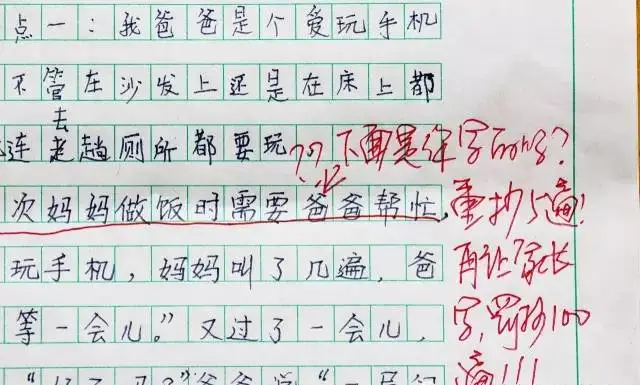 点一：我爸爸是个爱玩手机
不管在沙发上还是在床上都
去
连趟厕所都要玩 ??下面是你字的吗?
次妈妈做饭时需要爸爸帮忙， 重抄5遍!
玩手机，妈妈叫了几遍，爸 再让家长
等一会儿。”又过了一会儿， 字,罚抄100
爸爸说“一 遍!!!